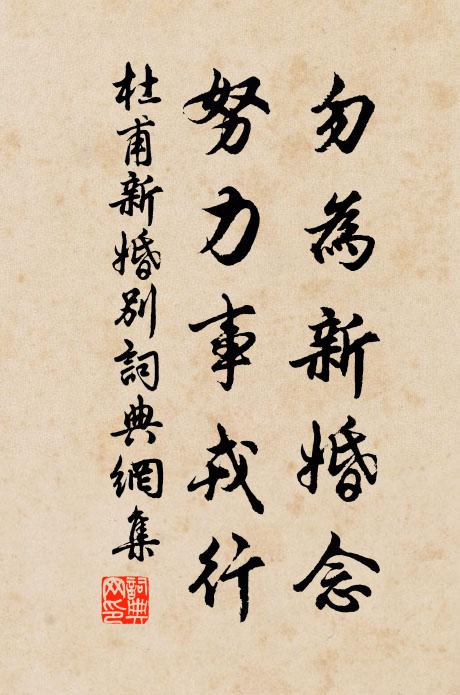 勿為新婚念
努力事戎行
杜甫新婚別詞典網集
詞典網印